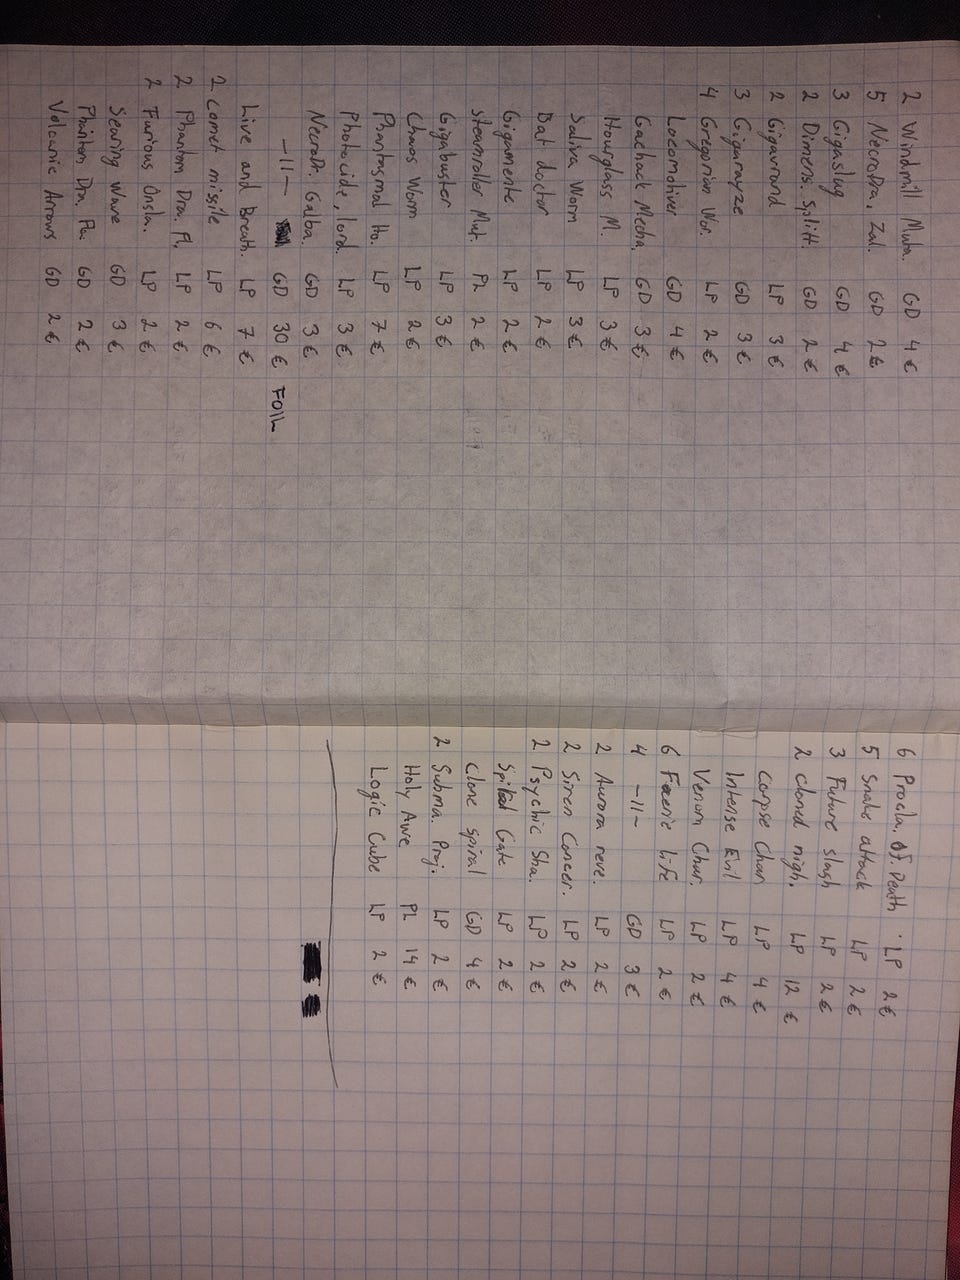 2 Windmill Muta. GD 4 €
5 NecroDra. Zal. GD 2 €
3 Gigaslug GD 4 €
2 Dimensi. Splitt. GD 2 €
2 Gigavrand LP 3 €
3 Gigarayze GD 3 €
4 Gregorian Wor. LP 2 €
Locomotiver GD 4 €
Gachack Mecha. GD 3 €
Hourglass M. LP 3 €
Saliva Worm LP 3 €
Bat doctor LP 2 €
Gigamente LP 2 €
Steamroller Mut. PL 2 €
Gigabuster LP 3 €
Chaos Worm LP 2 €
Phantasmal Ho. LP 7 €
Photocide, lord. LP 3 €
NecroDr. Galba. GD 3 €
-11- GD 30 € FOIL
Live and Breath. LP 7 €
2 Comet missile LP 6 €
2 Phantom Dra. Fl. LP 2 €
2 Furious Onsla. LP 2 €
Searing Wave GD 3 €
Phantom Dra. Fla. GD 2 €
Volcanic Arrows GD 2 €
6 Procla. Of. Death. LP 2 €
5 Snake attack LP 2 €
3 Future slash LP 2 €
2 cloned nigh. LP 12 €
Corpse Char. LP 4 €
Intense Evil LP 4 €
Venom Char. LP 2 €
6 Faerie life LP 2 €
4 -11- GD 3 €
2 Aurora reve. LP 2 €
2 Siren Concer. LP 2 €
2 Psychic Sha. LP 2 €
Spiral Gate LP 2 €
Clone spiral GD 4 €
2 Subma. Proj. LP 2 €
Holy Awe PL 14 €
Logic Cube LP 2 €